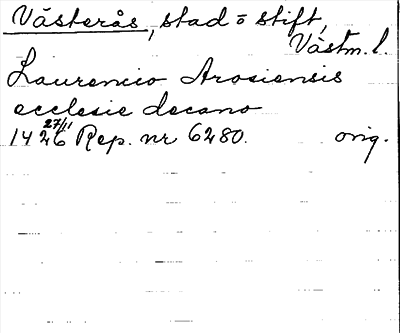 Västerås, stad o stift,
Västm. l.
Laurencio Arosiensis
ecclesie decano
27/11
1426 Rep. nr 6280. orig.